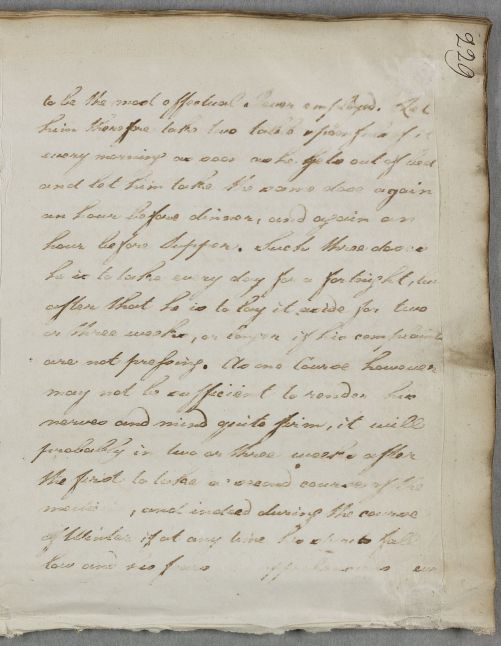 229
to be the most effectual I ever employed. Let
him therefore take two table spoonfuls of it
every morning as soon as he gets out of bed
and let him take the same dose again
an hour before dinner, and again an
hour before Supper. Such three doses
he is to take every day for a fortnight, but
after that he is to lay it aside for two
or three weeks, or longer if his complaints
are not pressing. As one Course however
may not be sufficient to render his
nerves and mind quite firm, it will
probably in two or three weeks after
the first to take a second course of the
, and indeed during the course
of Winter if at any time his spirits fall
low and his fears apprehensions